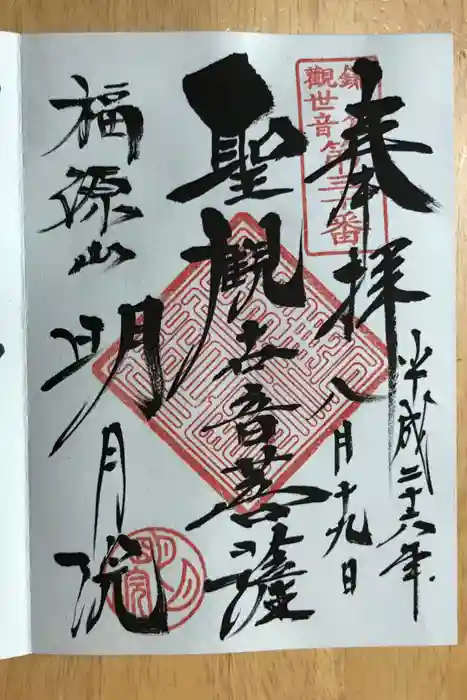 奉拝
平成二十六年
八月十九日
觀世音第三十番
聖觀世音菩薩
福源山
明月院
明月院